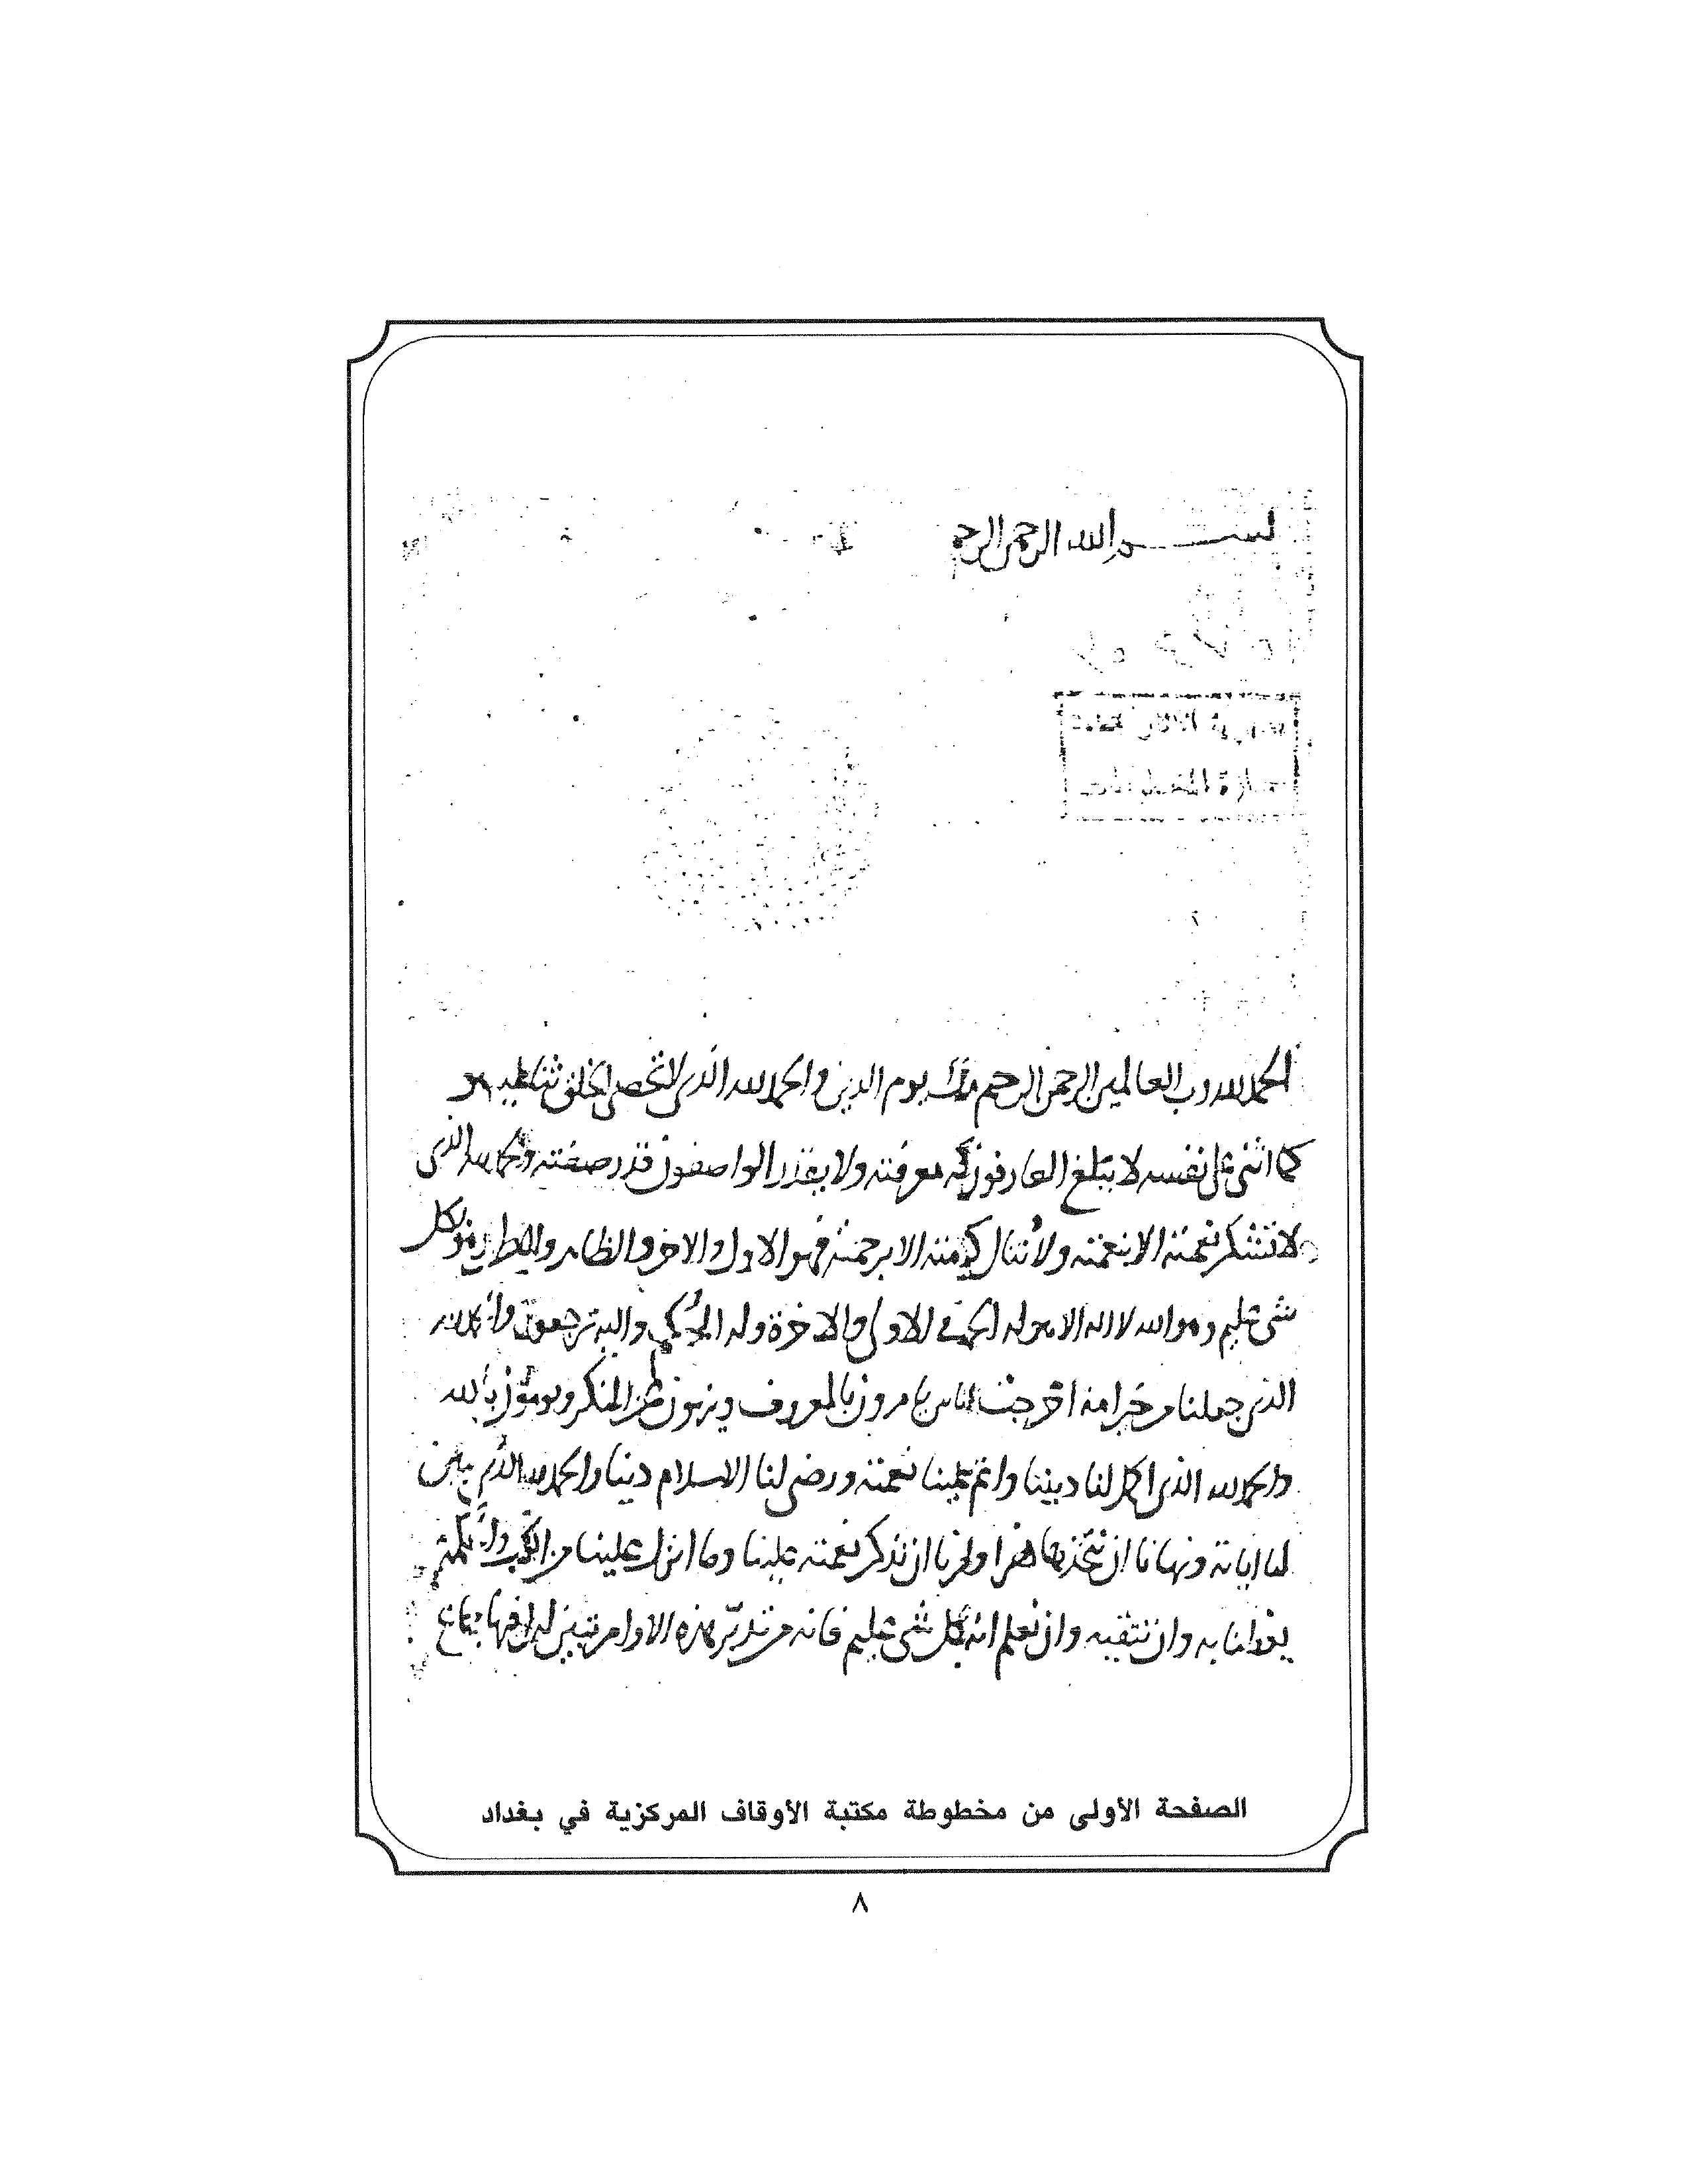 بسم الله الرحمن الرحيم
الحمد لله رب العالمين الرحمن الرحيم ملك يوم الدين والحمد لله الذى لا تحصى الخلق ثنا عليه
كما اثنى على نفسه لا يبلغ العارفون كنه معرفته ولا يقدر الواصفون قدر صفته والحمد لله الذى
لا تشكر نعمته الا بنعمته ولا تنال كرامته الا برحمته فهو الاول والاخر والظاهر والباطن وهو بكل
شى عليم وهو الله لا اله الا هو له الحمد فى الاولى والاخرة وله الحكم واليه ترجعون والحمد لله
الذى جعلنا من خير امة اخرجت للناس يامرون بالمعروف وينهون عن المنكر ويومنون بالله
والحمد لله الذى اكمل لنا ديننا واتم علينا نعمته ورضى لنا الاسلام دينا والحمد لله الذى بين
لنا اياته ونهانا ان نتخذها هزوا وامرنا ان نذكر نعمته علينا وما انزل علينا من الكتاب والحكمة
يعظنا به وان نتقيه وان نعلم انه بكل شى عليم فانه من تدبر هذه الاوامر تبين له ان فيها جماع
الصفحة الأولى من مخطوطة مكتبة الأوقاف المركزية في بغداد
٨